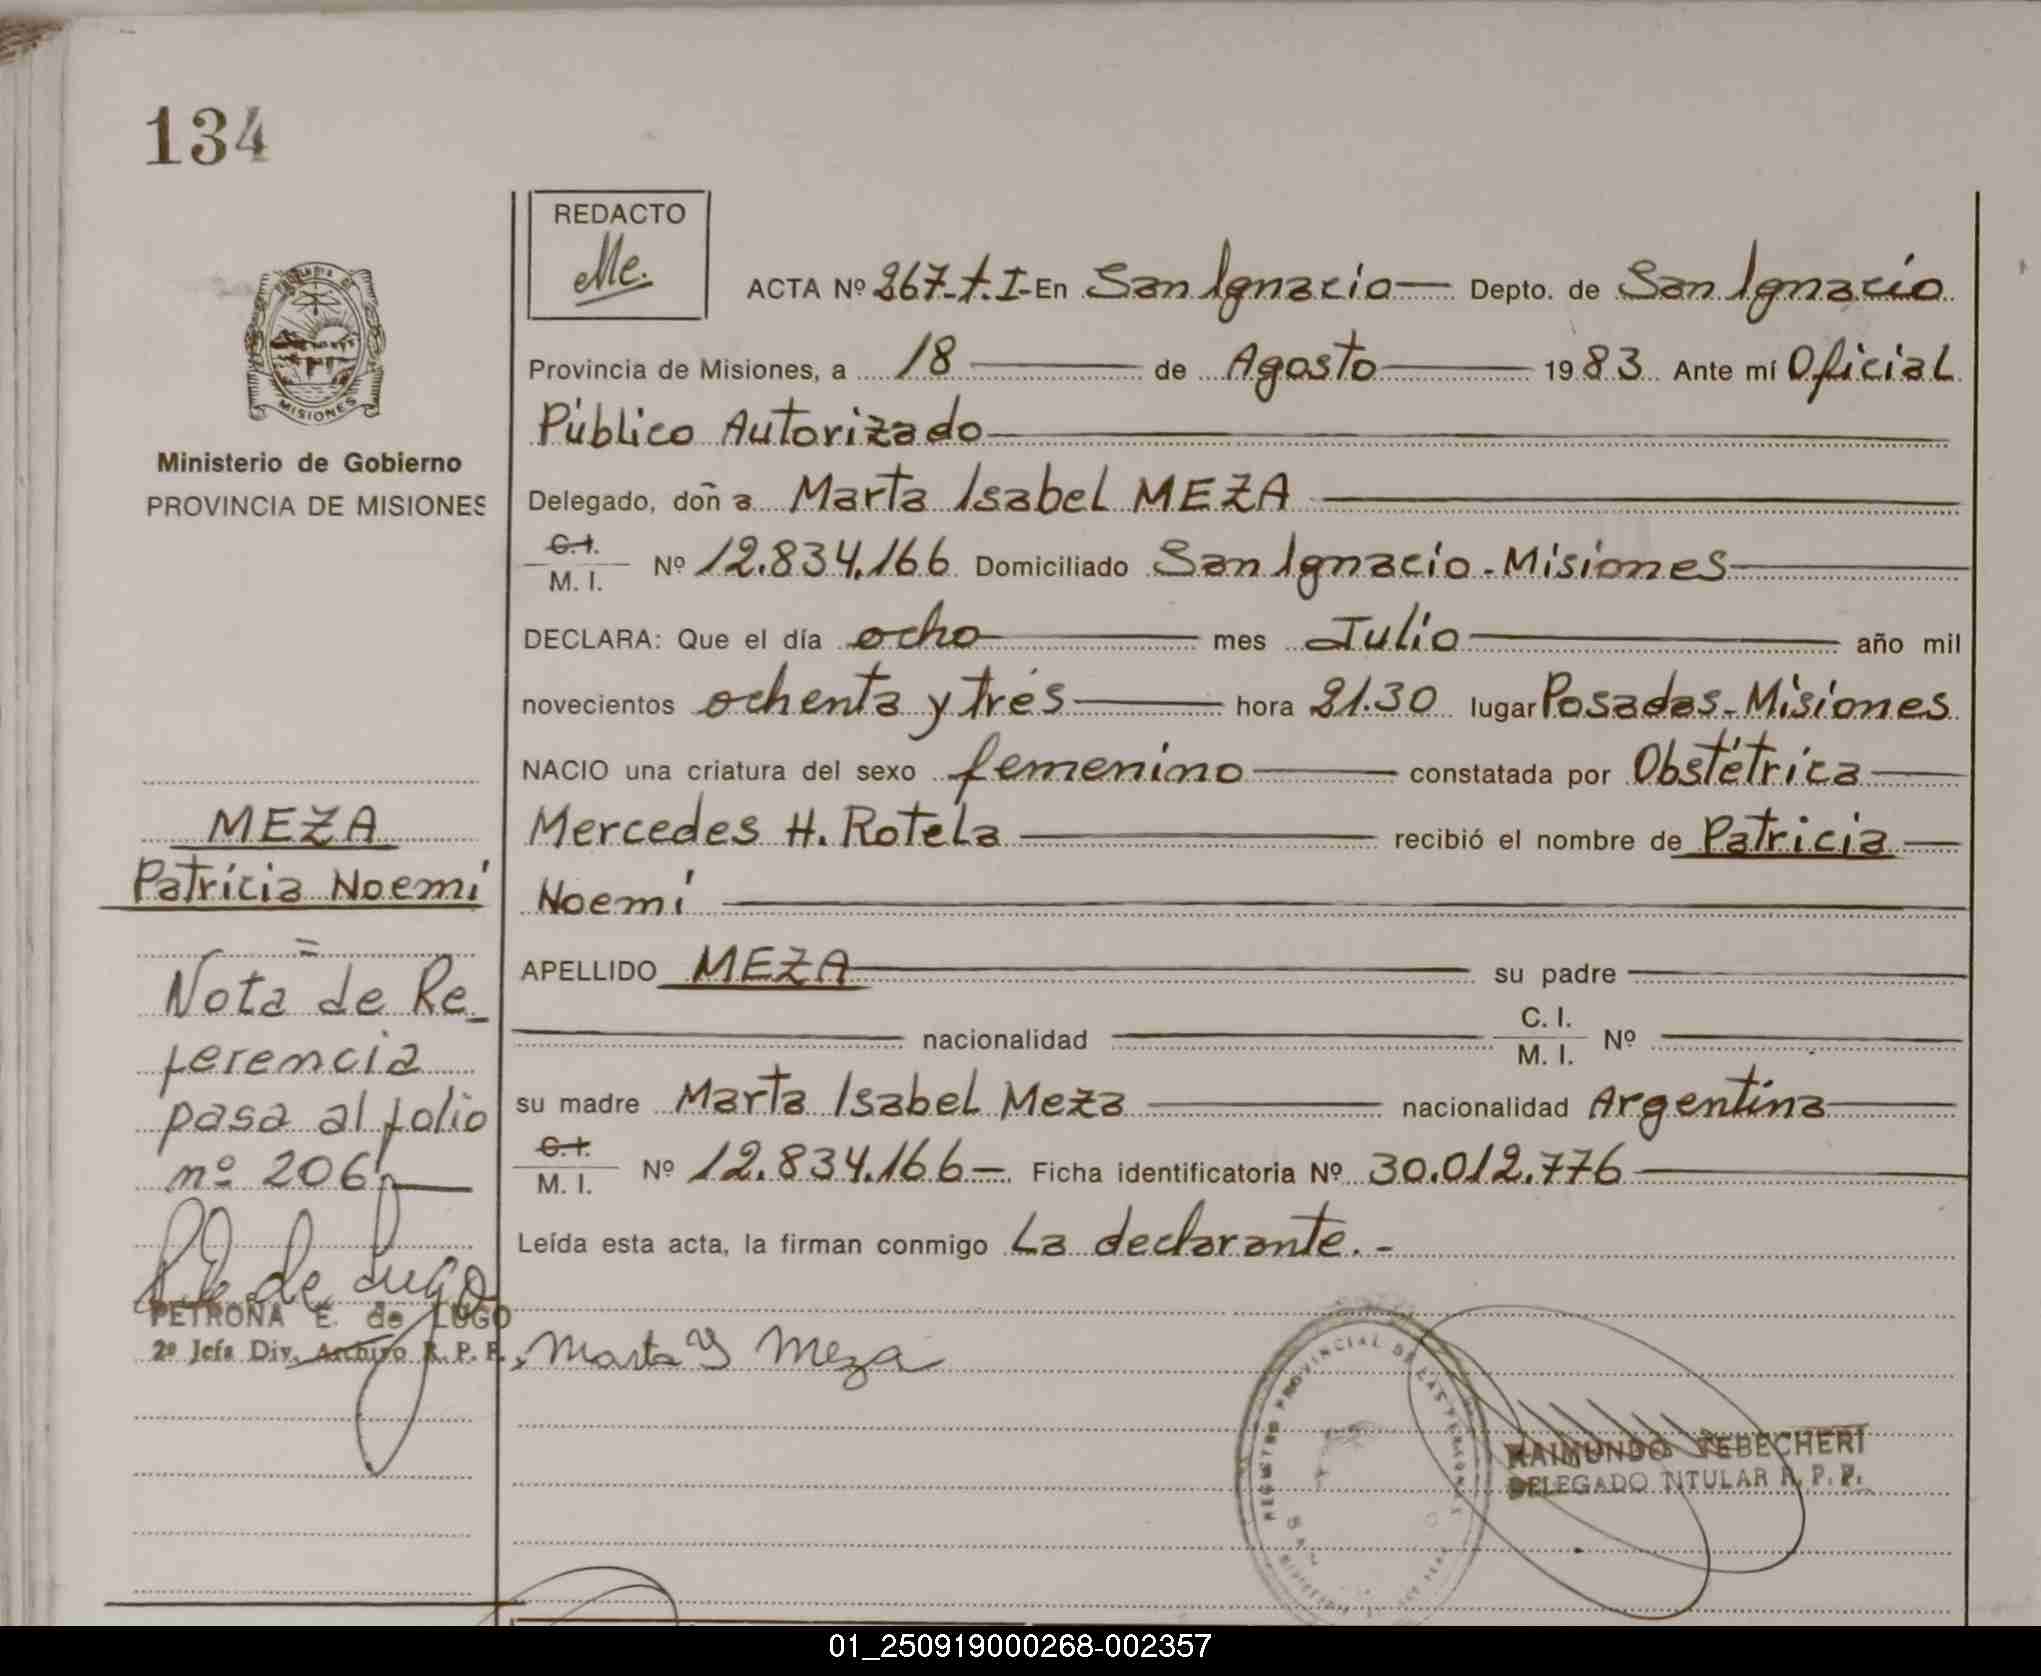 134
REDACTO
Me.
ACTA Nº 267-t.I-En San Ignacio Depto. de San Ignacio
MISIONES
Ministerio de Gobierno
PROVINCIA DE MISIONES
Provincia de Misiones, a 18 de Agosto 1983 Ante mí Oficial
Público Autorizado
Delegado, doña Marta Isabel MEZA
C.I.
M. I. Nº 12.834.166 Domiciliado San Ignacio - Misiones
DECLARA: Que el día ocho mes Julio año mil
novecientos ochenta y trés hora 21.30 lugar Posadas - Misiones
NACIO una criatura del sexo femenino constatada por Obstétrica
Mercedes H. Rotela recibió el nombre de Patricia
Noemí
APELLIDO MEZA su padre
nacionalidad C. I.
M. I. Nº
su madre Marta Isabel Meza nacionalidad Argentina
C.I.
M. I. Nº 12.834.166 - Ficha identificatoria Nº 30.012.776
Leída esta acta, la firman conmigo La declarante. -
MEZA
Patricia Noemí
Nota de Re_
ferencia
pasa al folio
nº 206
de Lugo
PETRONA E. de LUGO
2º Jefa Div. Archivo R. P. P.
Marta Y Meza
REGISTRO PROVINCIAL DE LAS PERSONAS
RAIMUNDO TEBECHERI
DELEGADO TITULAR R. P. P.
01_250919000268-002357